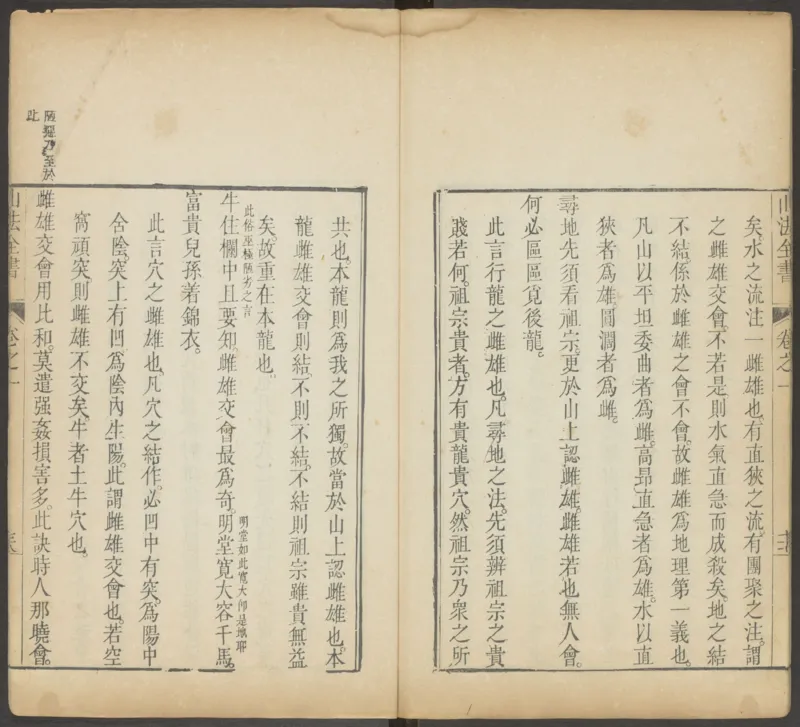 矣水之流注一雌雄也有直狹之流有團聚之注謂
之雌雄交會不若是則水氣直急而成殺矣地之結
不結係於雌雄之會不會故雌雄爲地理第一義也
凡山以平坦委曲者爲雌高昂直急者爲雄水以直
狹者爲雄圓濶者爲雌
尋地先須看祖宗更於山上認雌雄雌雄若也無人會
何必區區覓後龍
此言行龍之雌雄也凡尋地之法先須辨祖宗之貴
賤若何祖宗貴者方有貴龍貴穴然祖宗乃衆之所
山法全書
卷之一
共也本龍則爲我之所獨故當於山上認雌雄也本
龍雌雄交會則結不則不結不結則祖宗雖貴無益
矣故重在本龍也
此俗巫極陋劣之言
牛住欄中且要知雌雄交會最爲奇明堂寬大容千馬
明堂如此寬大何是壙耶
富貴兒孫着錦衣
此言穴之雌雄也凡穴之結作必凹中有突爲陽中
含陰突上有凹爲陰內生陽此謂雌雄交會也若空
窩頑突則雌雄不交矣牛者土牛穴也
雌雄交會用比和莫遣强姦損害多此訣時人那曉會
陋猥乃至於
此
山法全書
卷之一